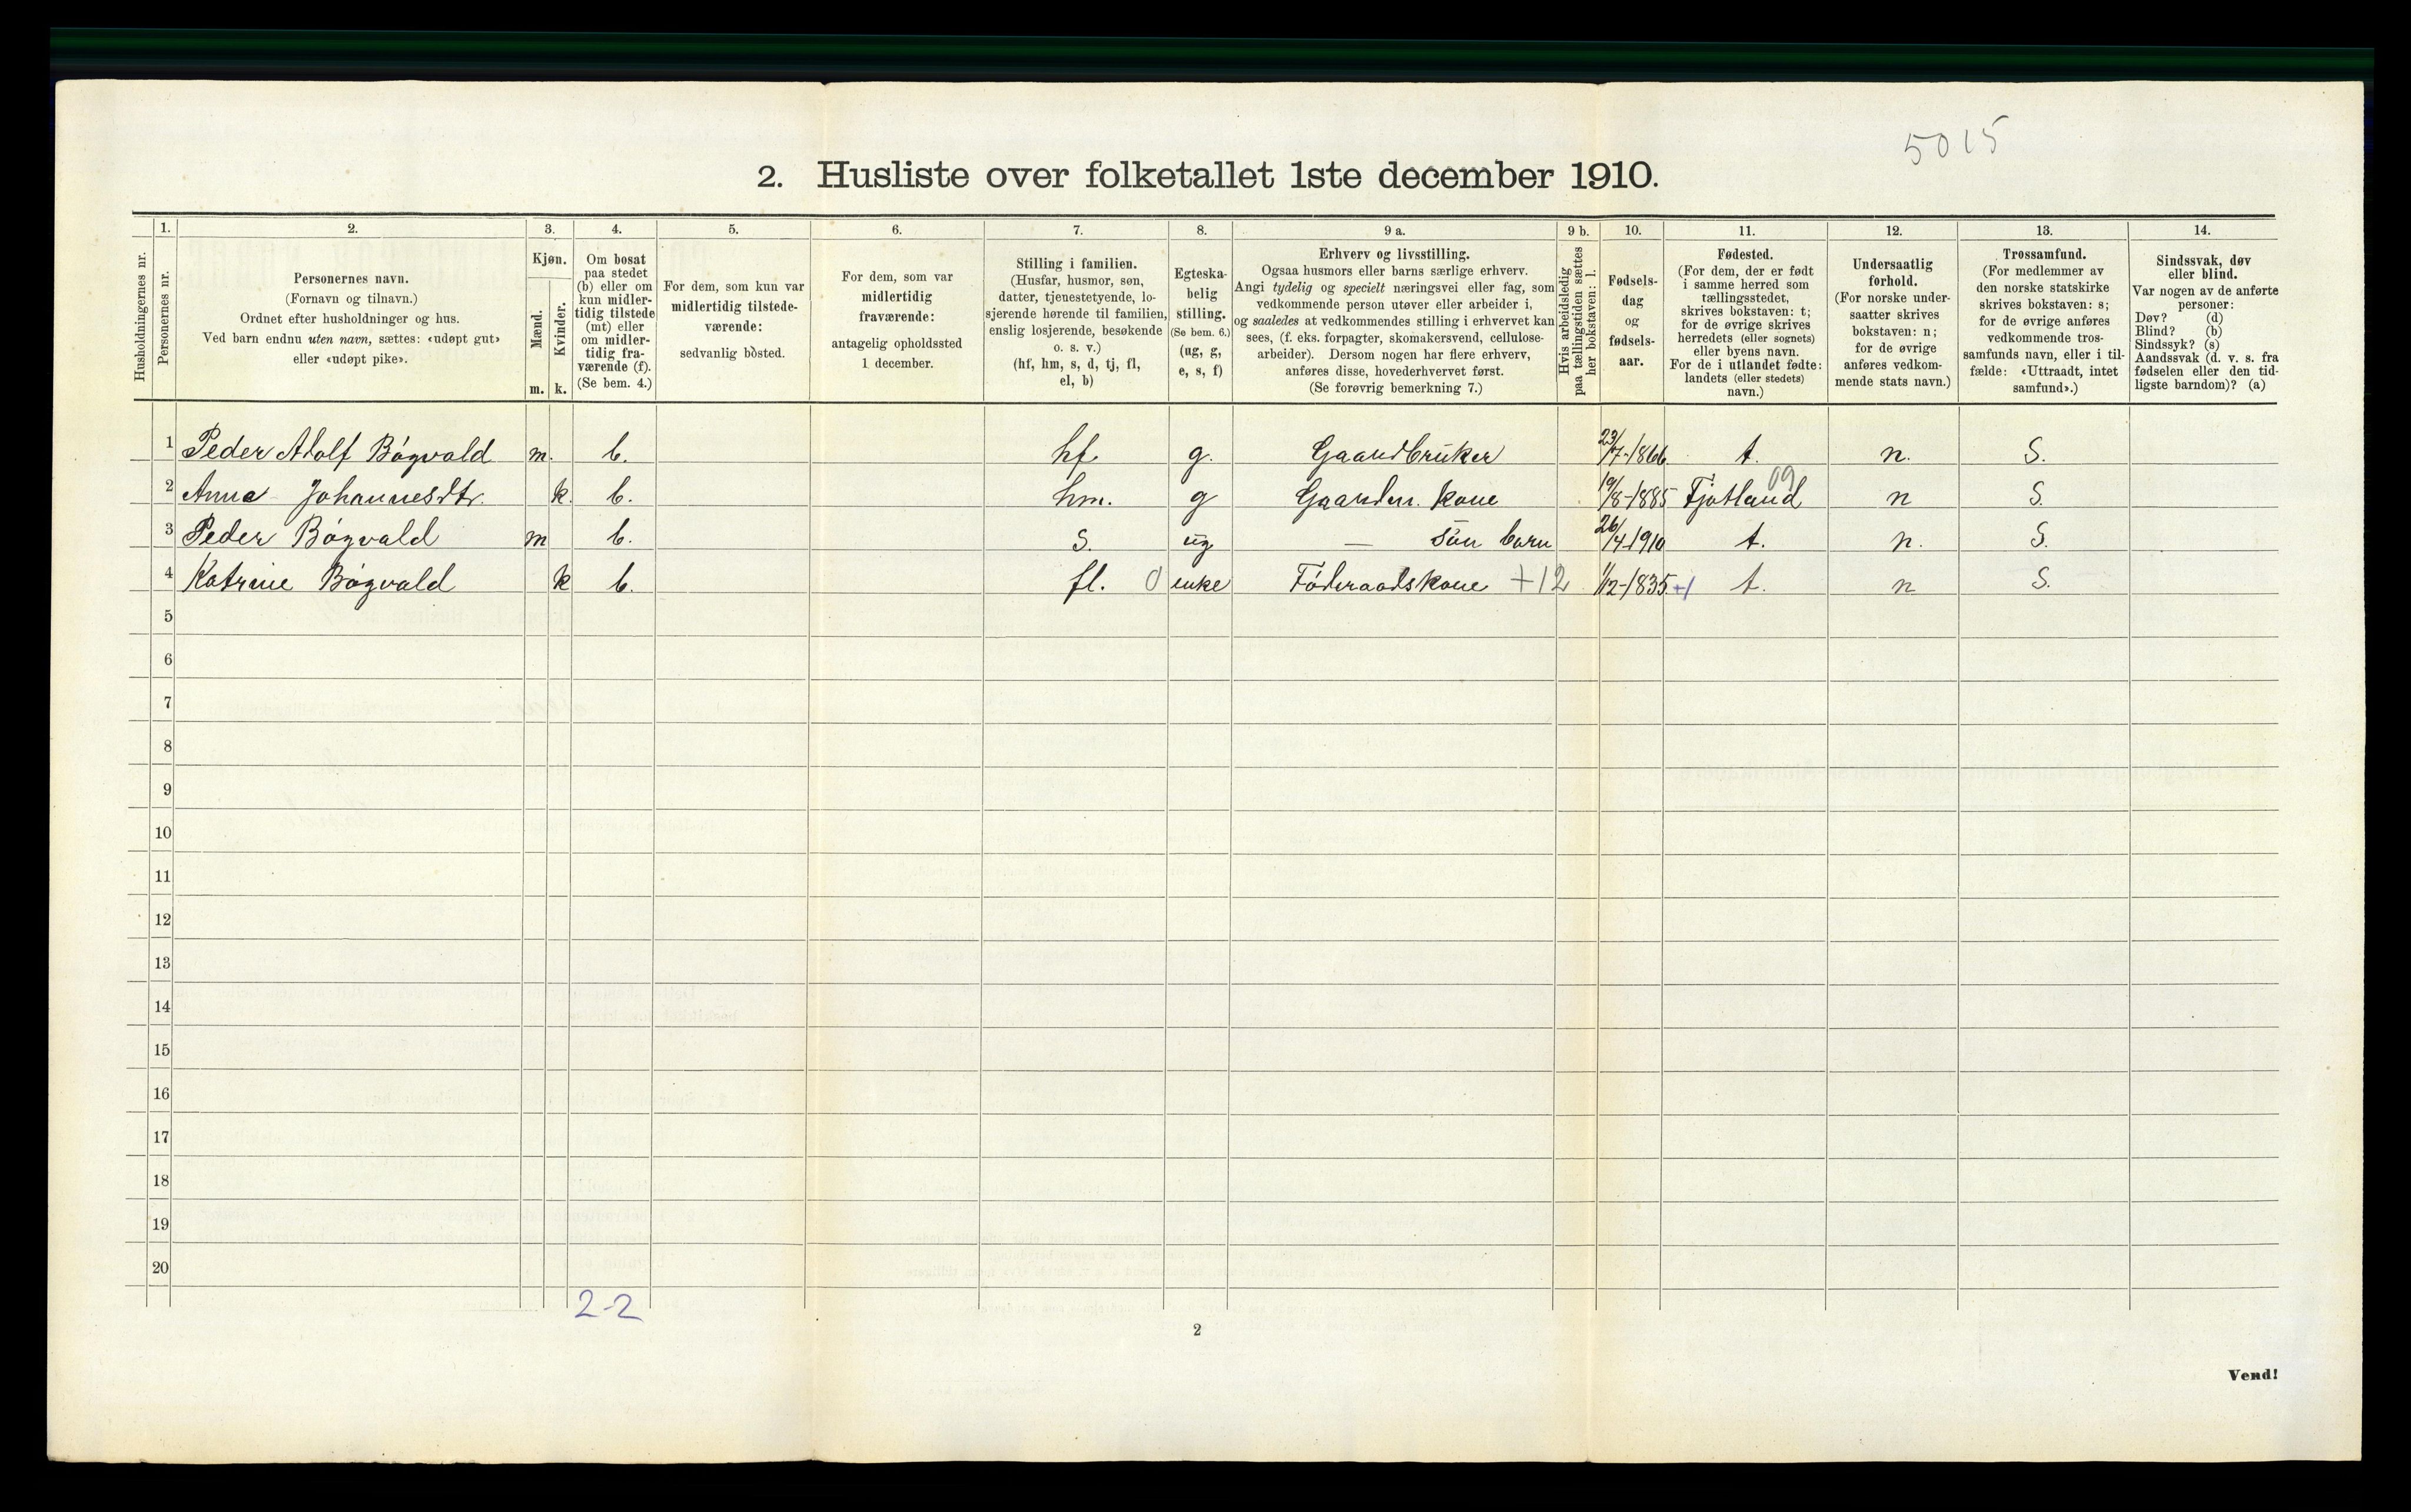 5015
2. Husliste over folketallet 1ste december 1910.
Husholdningernes nr.
1.
Personernes nr.
2.
Personernes navn.
(Fornavn og tilnavn.)
Ordnet efter husholdninger og hus.
Ved barn endnu uten navn, sættes: «udøpt gut»
eller «udøpt pike».
3.
Kjøn.
Mænd.
m.
Kvinder.
k.
4.
Om bosat
paa stedet
(b) eller om
kun midler-
tidig tilstede
(mt) eller
om midler-
tidig fra-
værende (f).
(Se bem. 4.)
5.
For dem, som kun var
midlertidig tilstede-
værende:
sedvanlig bosted.
6.
For dem, som var
midlertidig
fraværende:
antagelig opholdssted
1 december.
7.
Stilling i familien.
(Husfar, husmor, søn,
datter, tjenestetyende, lo-
sjerende hørende til familien,
enslig losjerende, besøkende
o. s. v.)
(hf, hm, s, d, tj, fl,
el, b)
8.
Egteska-
belig
stilling.
(Se bem. 6.)
(ug, g,
e, s, f)
9 a.
Erhverv og livsstilling.
Ogsaa husmors eller barns særlige erhverv.
Angi tydelig og specielt næringsvei eller fag, som
vedkommende person utøver eller arbeider i,
og saaledes at vedkommendes stilling i erhvervet kan
sees, (f. eks. forpagter, skomakersvend, cellulose-
arbeider). Dersom nogen har flere erhverv,
anføres disse, hovederhvervet først.
(Se forøvrig bemerkning 7.)
9 b.
Hvis arbeidsledig
paa tællingstiden sættes
her bokstaven: l.
10.
Fødsels-
dag
og
fødsels-
aar.
11.
Fødested.
(For dem, der er født
i samme herred som
tællingsstedet,
skrives bokstaven: t;
for de øvrige skrives
herredets (eller sognets)
eller byens navn.
For de i utlandet fødte:
landets (eller stedets)
navn.)
12.
Undersaatlig
forhold.
(For norske under-
saatter skrives
bokstaven: n;
for de øvrige
anføres vedkom-
mende stats navn.)
13.
Trossamfund.
(For medlemmer av
den norske statskirke
skrives bokstaven: s;
for de øvrige anføres
vedkommende tros-
samfunds navn, eller i til-
fælde: «Uttraadt, intet
samfund».)
14.
Sindssvak, døv
eller blind.
Var nogen av de anførte
personer:
Døv? (d)
Blind? (b)
Sindssyk? (s)
Aandssvak (d. v. s. fra
fødselen eller den tid-
ligste barndom)? (a)
1 Peder Adolf Bøgvald m. b. hf. g. Gaardbruker 23/7-1866 t. n. S.
2 Anna Johannesdtr. k. b. hm. g Gaardm. kone 19/8-1885 Fjotland 09 n S.
3 Peder Bøgvald m b. S. ug — Søn barn 26/4-1910 t. n. S.
4 Katrine Bøgvald k b. fl. 0 enke Føderaadskone +12 1/12-1835 +1 t. n S.
5
6
7
8
9
10
11
12
13
14
15
16
17
18
19
20
2-2
2
Vend!